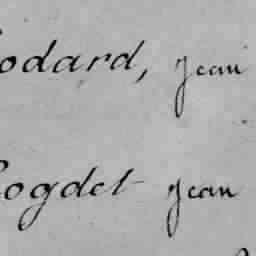 odard, Jean
ogdet Jean